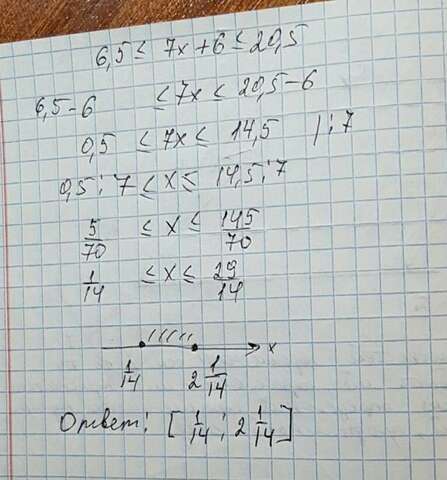 6,5 ≤ 7x + 6 ≤ 20,5
6,5 - 6 ≤ 7x ≤ 20,5 - 6
0,5 ≤ 7x ≤ 14,5 | : 7
0,5 : 7 ≤ x ≤ 14,5 : 7
5/70 ≤ x ≤ 145/70
1/14 ≤ x ≤ 29/14
x
1/14 2 1/14
Ответ: [ 1/14 ; 2 1/14 ]